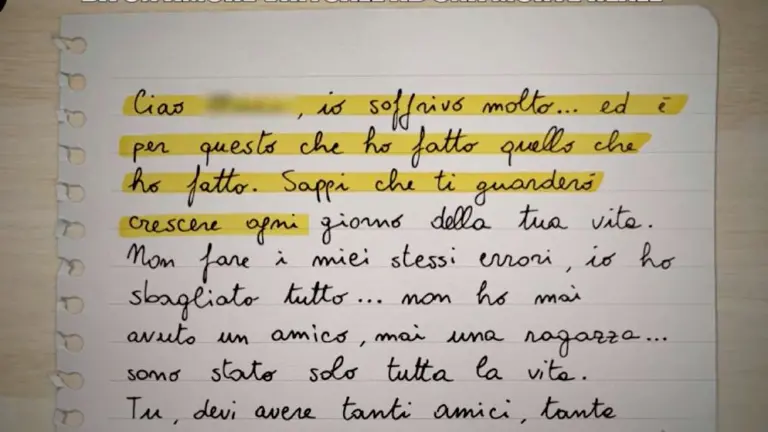 Ciao , io soffrivo molto... ed è
per questo che ho fatto quello che
ho fatto. Sappi che ti guarderó
crescere ogni giorno della tua vita.
Non fare i miei stessi errori, io ho
sbagliato tutto... non ho mai
avuto un amico, mai una ragazza...
sono stato solo tutta la vita.
Tu, devi avere tanti amici, tante